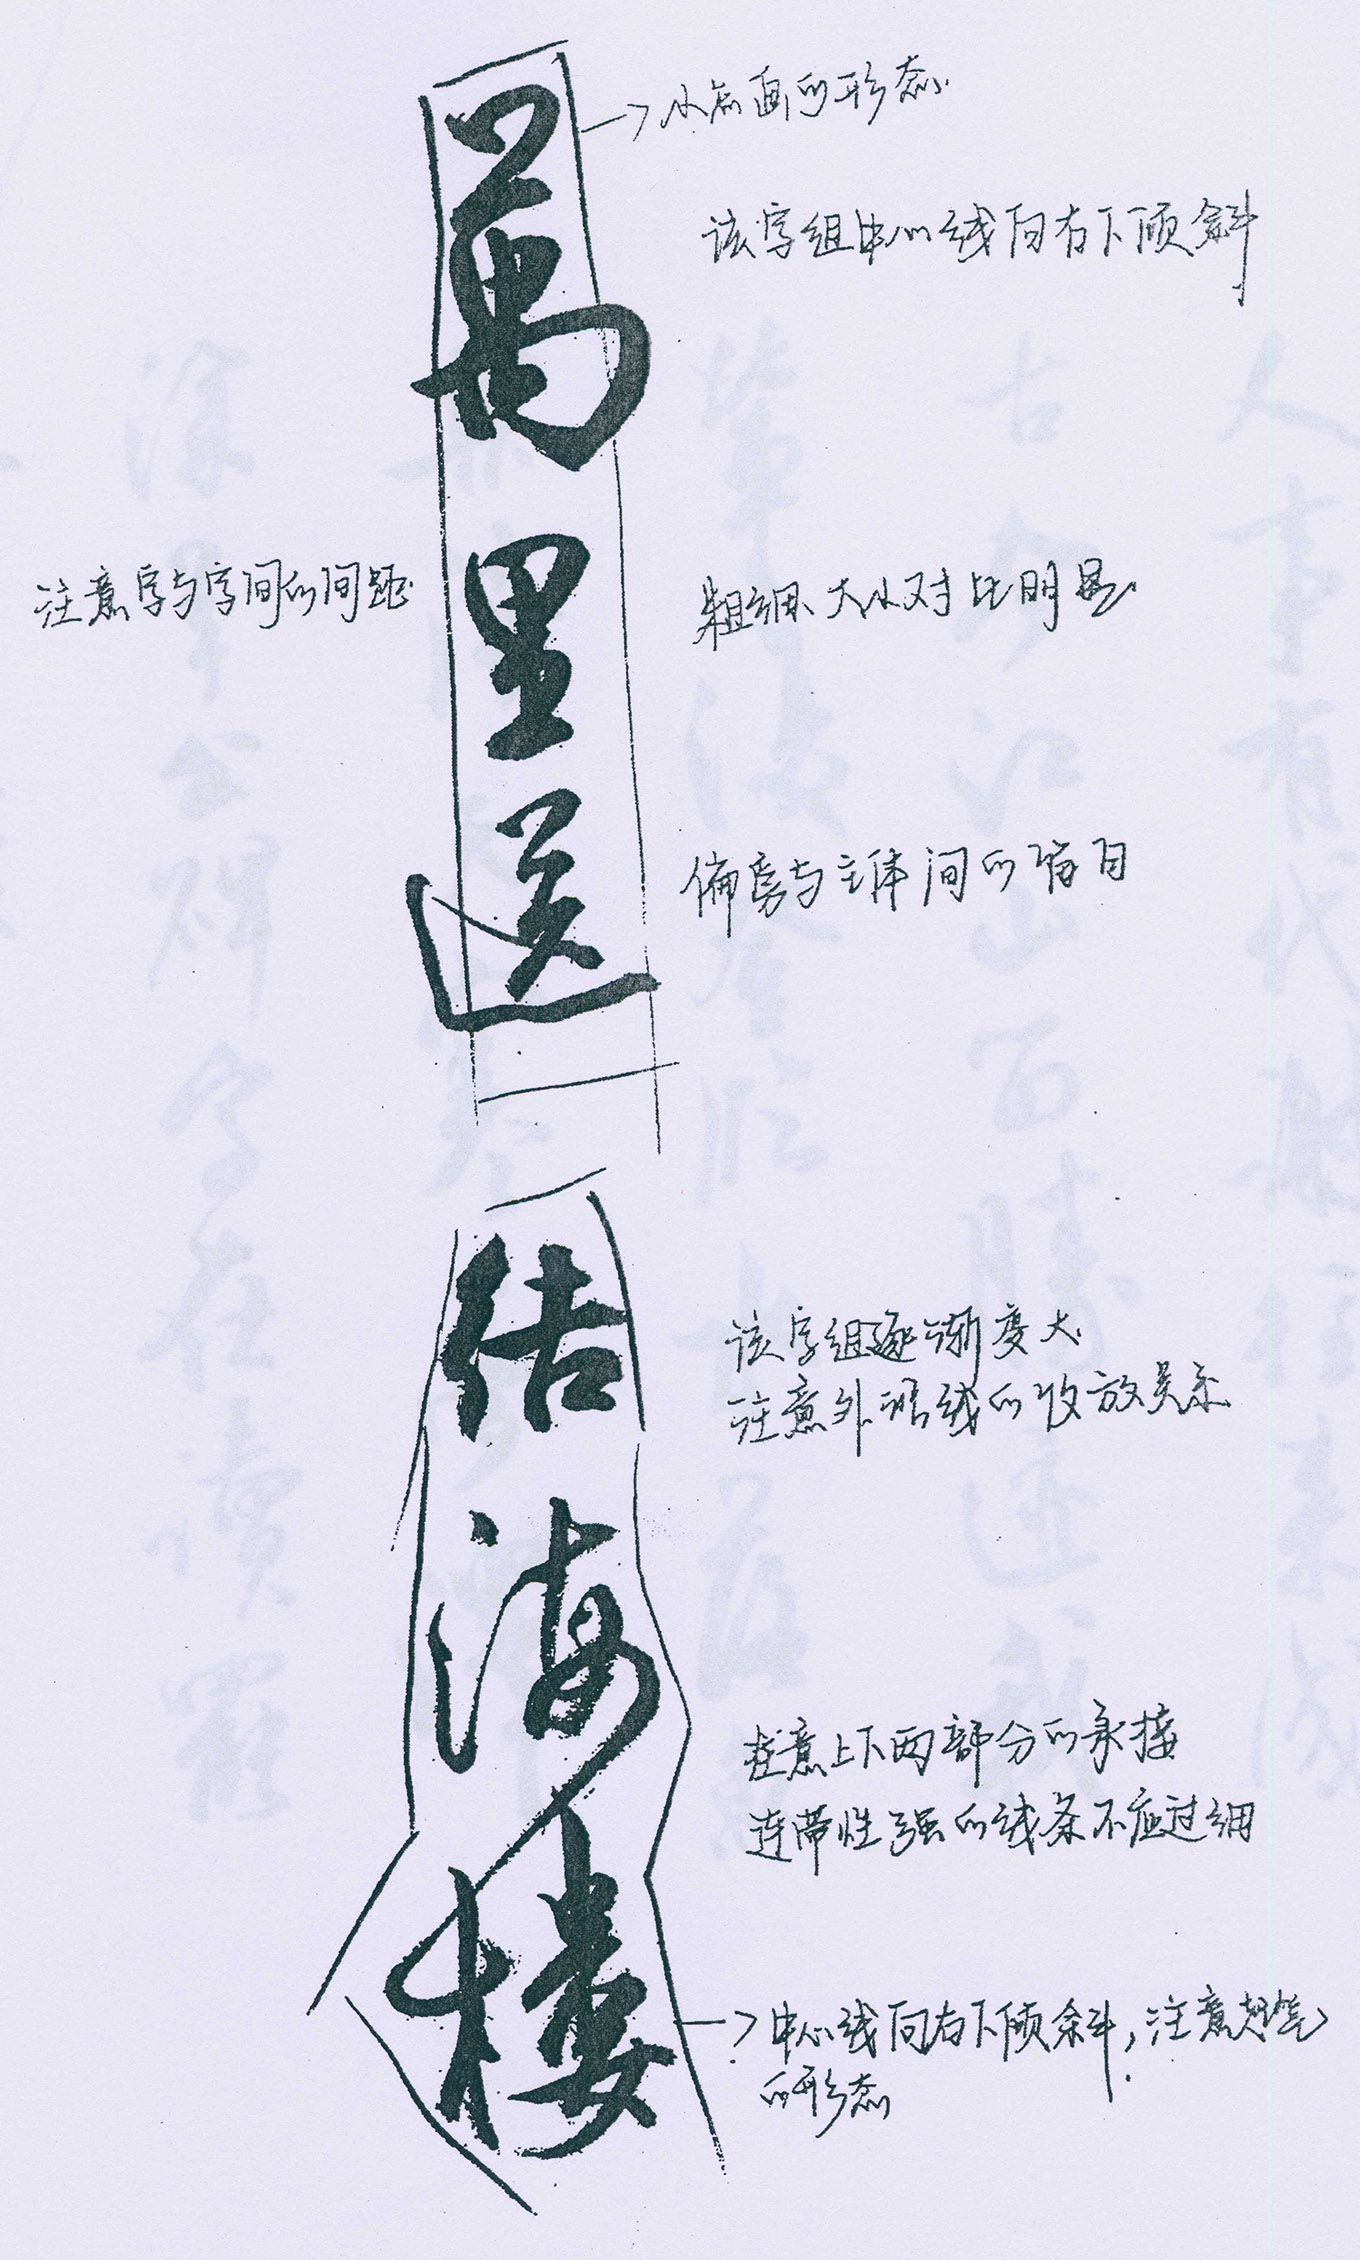 萬里送
结海楼
小点画的形态
该字组中心线向右下倾斜
注意字与字间的间距
粗细、大小对比明显
偏旁与主体间的留白
该字组逐渐变大
注意外形线的收放关系
注意上下两部分的承接
连带性强的线条不应过细
中心线向右下倾斜，注意起笔
的形态